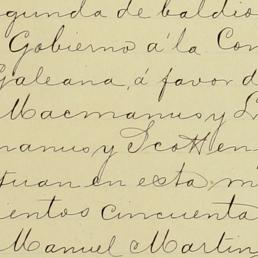 gunda de baldio
Gobierno á la Con
Galeana, á favor d
Macmanus y
manus y Scott en
tuan en esta m
ientos cincuenta
Manuel Martin